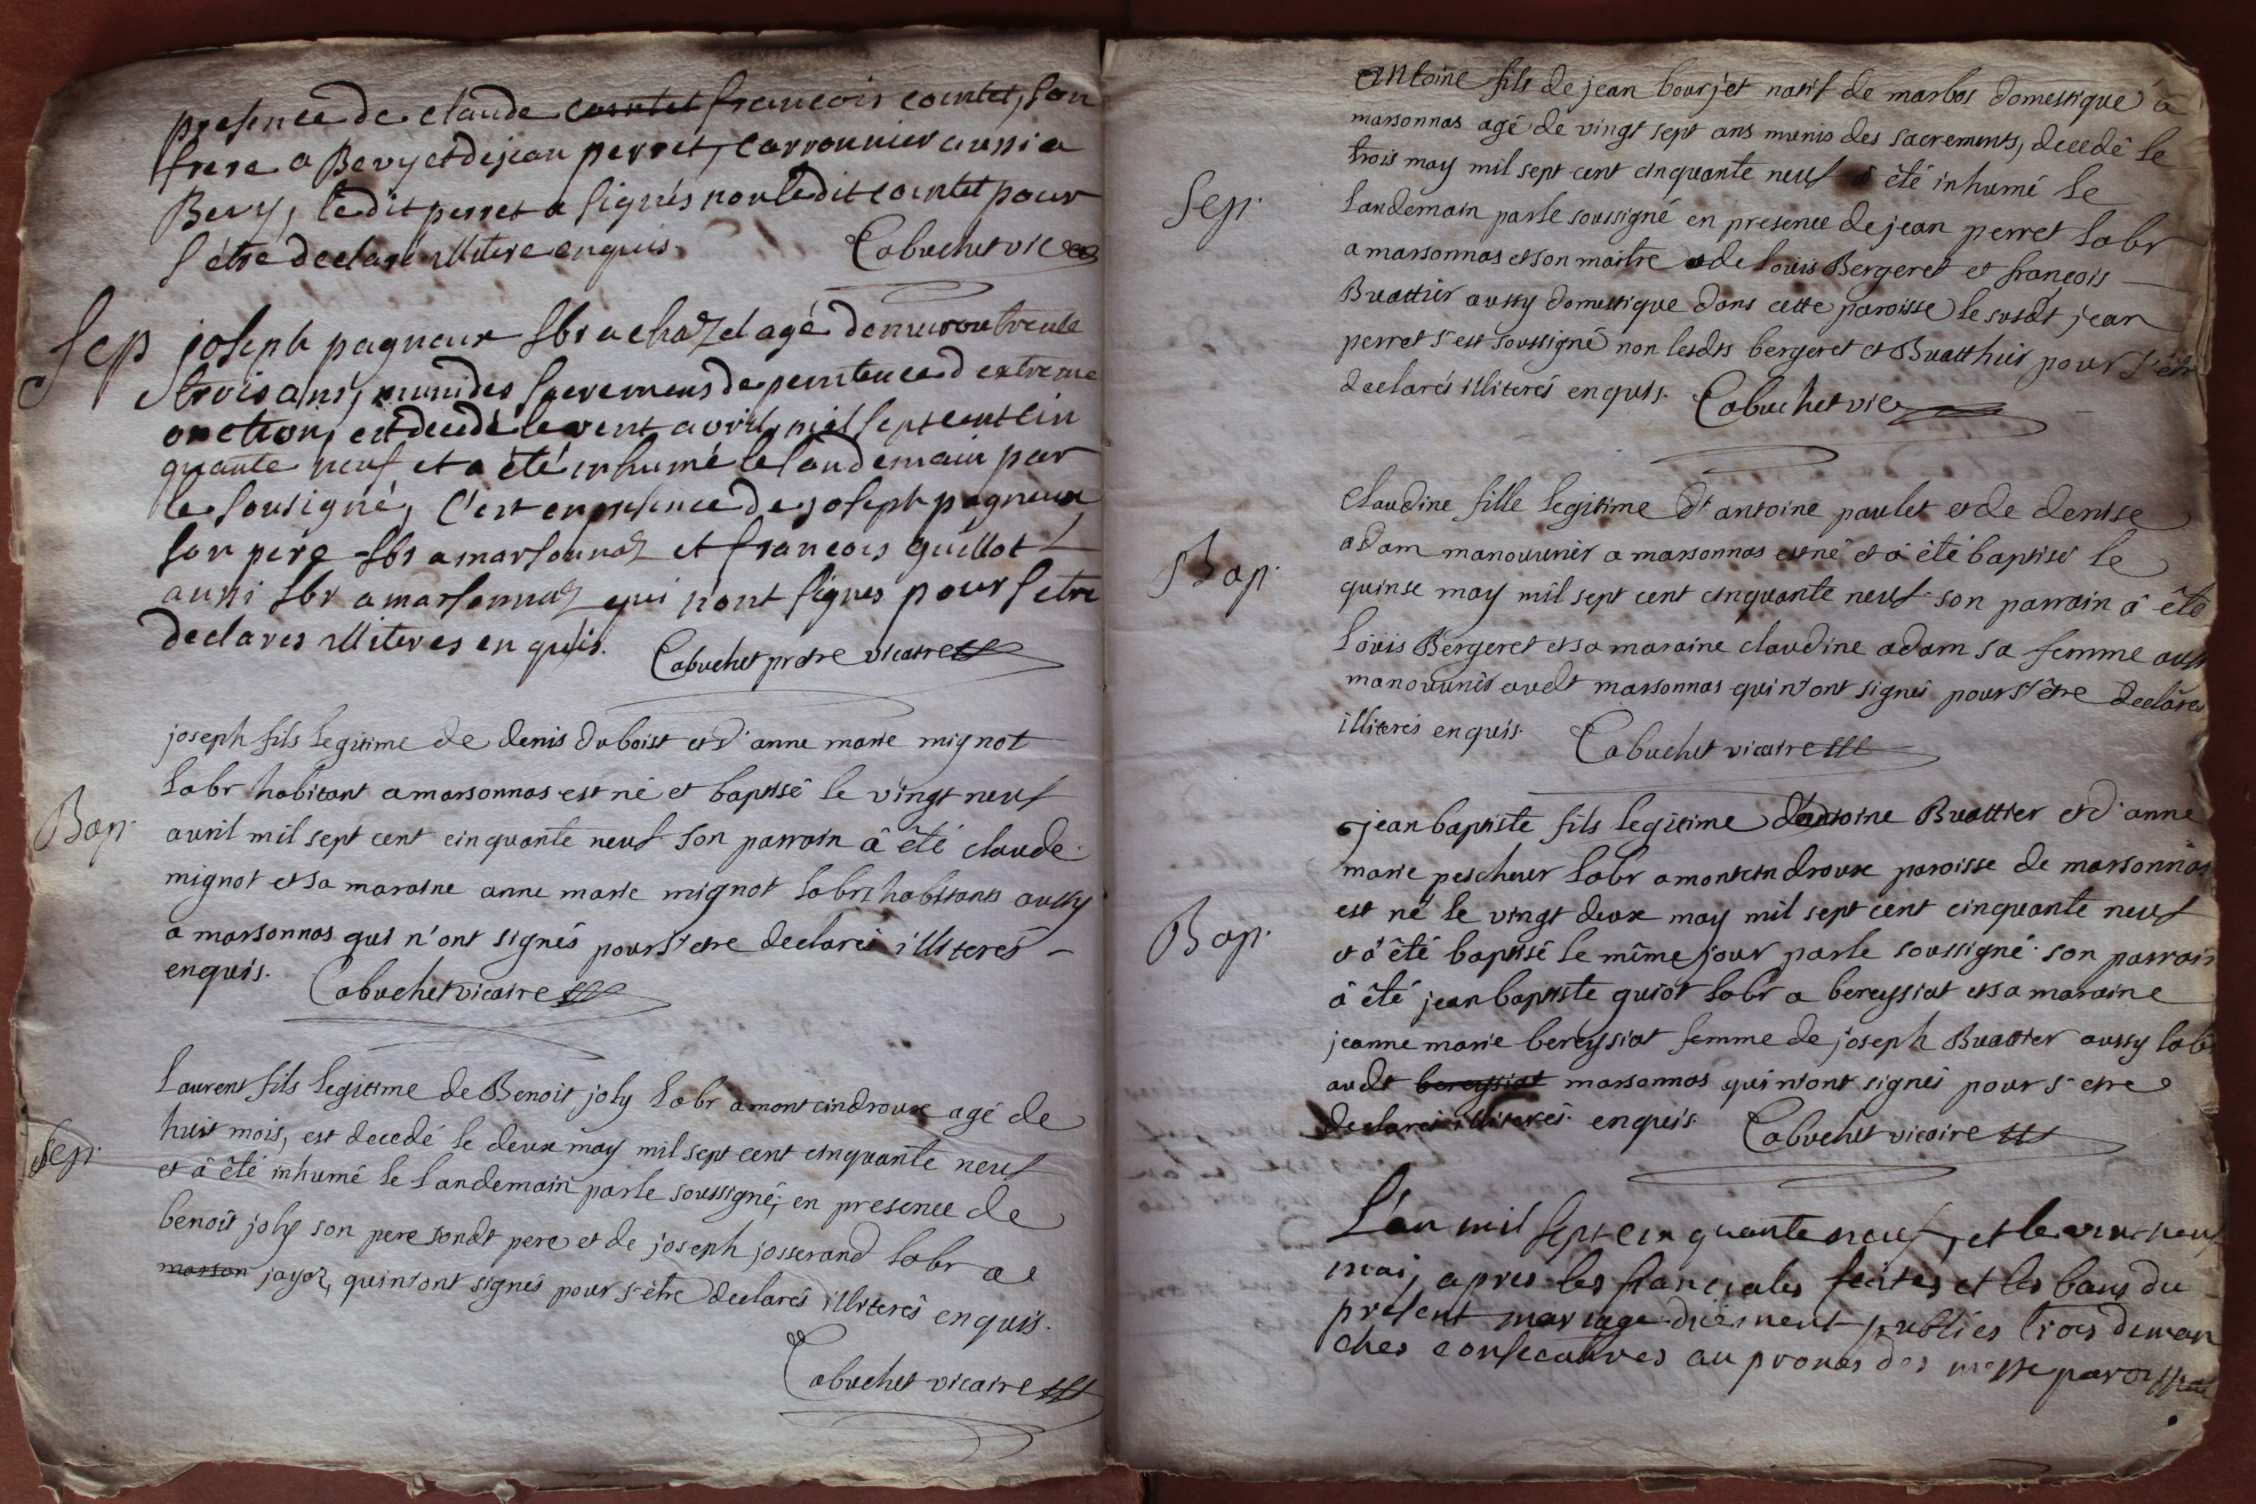 presence de claude cointet francois cointet, son
frere a Bevy et de jean perret, carronnier aussi a
Bevy, ledit perret a signés non ledit cointet pour
s'être declaré illitere enquis. Cabuchet vic
Sep joseph pagneux lbr a chazel agé denviron trente
trois ans, muni des sacremens de penitence d extreme
onction, est decedé le vent avril, mil sept cent cin
quante neuf et a été inhumé le landemain par
le sousigné, c'est en presence de joseph pagneux
son pere lbr a marsonnaz et francois guillot
aussi lbr a marsonnaz qui n'ont signes pour s etre
declares illiteres en quis. Cabuchet pretre vicaire
joseph fils legitime de denis duboist et d'anne marie mignot
labr habitant a marsonnas est né et baptisé le vingt neuf
Bap. avril mil sept cent cinquante neuf son parrain â êté claude
mignot et sa maraine anne marie mignot labrs habitants aussy
a marsonnas qui n'ont signés pour s'etre declarés illiterés
enquis. Cabuchet vicaire
Laurent fils legitime de Benoit joly labr a montcindroux agé de
huit mois, est decedé le deux may mil sept cent cinquante neuf
Sep. et â êté inhumé le landemain par le soussigné, en presence de
benoit joly son pere sondt pere et de joseph josserand labr a
marson jayaz, qui n'ont signés pour s'être declarés illiterés enquis.
Cabuchet vicaire
Antoine fils de jean bourjet natif de marbos domestique â
marsonnas agé de vingt sept ans munis des sacrements, decedé le
trois may mil sept cent cinquante neuf â êté inhumé le
Sep. landemain par le soussigné en presence de jean perret labr
a marsonnas et son maitre de louis Bergeret et françois
Buattier aussy domestique dans cette paroisse le susdt jean
perret s'est soussigné non lesdts bergeret et Buatthier pour s'être
declarés illiterés enquis. Cabuchet vic
Claudine fille legitime d'antoine paulet et de denise
adam manouvrier a marsonnas est né et â êté baptisé le
Bap. quinse may mil sept cent cinquante neuf son parrain â êté
Loüis Bergeret et sa maraine claudine adam sa femme aussy
manouvriés audt marsonnas qui n'ont signés pour s'être declarés
illiterés enquis. Cabuchet vicaire
jean baptiste fils legitime d'antoine Buattier et d'anne
marie pescheur labr a montcindroux paroisse de marsonnas
Bap. est né le vingt deux may mil sept cent cinquante neuf
et â êté baptisé le même jour par le soussigné. son parrain
â êté jean baptiste guiot labr a bereyssiat et sa maraine
jeanne marie bereysiat femme de joseph Buattier aussy labr
audt bereyssiat marsonnas qui n'ont signés pour s'etre
declarés illiterés. enquis. Cabuchet vicaire
L'an mil sept cinquante neuf, et le vint neuf
mai, apres les fianciales faites et les bans du
present mariage düement publiés trois diman
ches consecutives au prones des messe paroissial